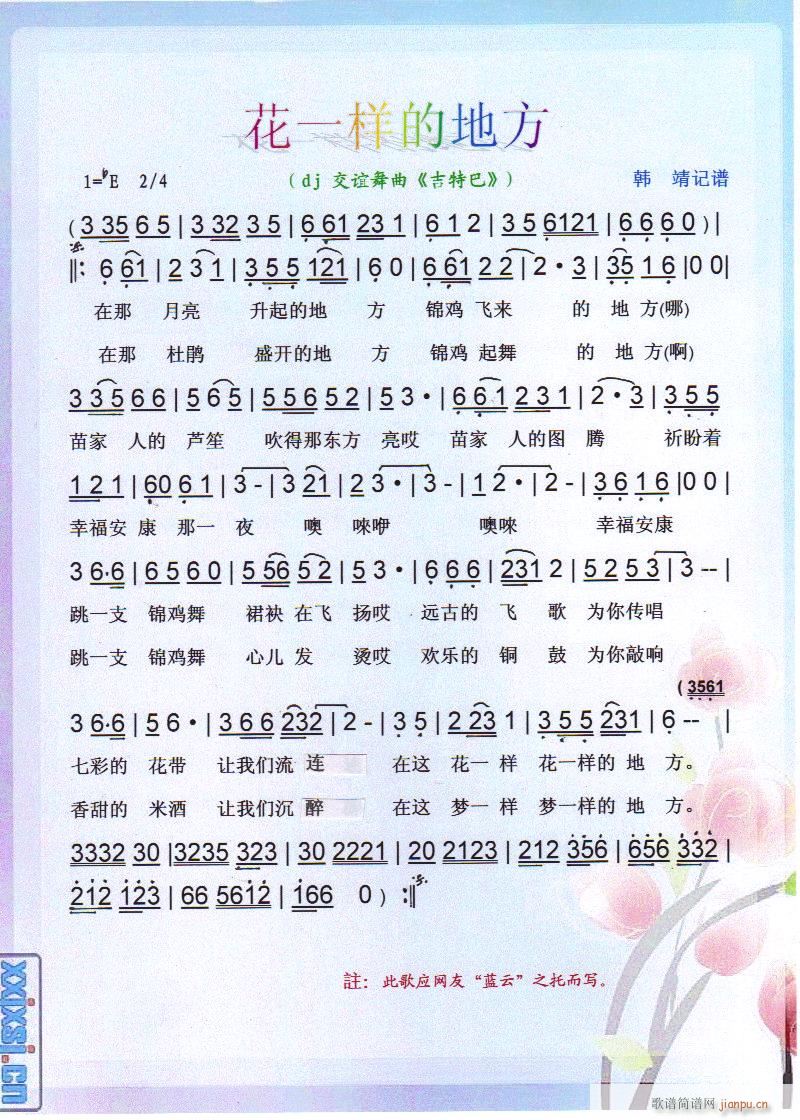 花一样的地方
1=♭E 2/4 （dj 交谊舞曲《吉特巴》） 韩 靖记谱
(3 35 6 5 | 3 32 3 5 | 6 61 23 1 | 6 1 2 | 3 5 6121 | 6 6 6 0 )|
‖: 6 61 | 2 3 1 | 3 5 5 121 | 6 0 | 6 61 2 2 | 2 · 3 | 35 1 6 | 0 0 |
在那 月亮 升起的地 方 锦鸡 飞来 的 地 方(哪)
在那 杜鹃 盛开的地 方 锦鸡 起舞 的 地 方(啊)
3 3 5 6 6 | 5 6 5 | 5 5 6 5 2 | 5 3 · | 6 6 1 2 3 1 | 2 · 3 | 3 5 5
苗家 人的 芦笙 吹得那东方 亮哎 苗家 人的图 腾 祈盼着
1 2 1 | 60 6 1 | 3 - | 3 21 | 2 3 · | 3 - | 1 2 · | 2 - | 3 6 1 6 | 0 0 |
幸福安 康 那一 夜 噢 唻咿 噢唻 幸福安康
3 6·6 | 6 5 6 0 | 5 56 5 2 | 5 3 · | 6 6 6 | 231 2 | 5 2 5 3 | 3 -- |
跳一支 锦鸡舞 裙袂 在飞 扬哎 远古的 飞 歌 为你传唱
跳一支 锦鸡舞 心儿 发 烫哎 欢乐的 铜 鼓 为你敲响
(3561
3 6·6 | 5 6 · | 3 6 6 232 | 2 - | 3 5 | 2 23 1 | 3 5 5 231 | 6 -- |
七彩的 花带 让我们流 连 在这 花一 样 花一样的 地 方。
香甜的 米酒 让我们沉 醉 在这 梦一 样 梦一样的 地 方。
3332 30 |3235 323 | 30 2221 | 20 2123 | 212 356 | 656 332 |
212 123 | 66 5612 | 166 0 ) :‖
註：此歌应网友“蓝云”之托而写。
xxjxsj.cn
歌谱简谱网
jianpu.cn